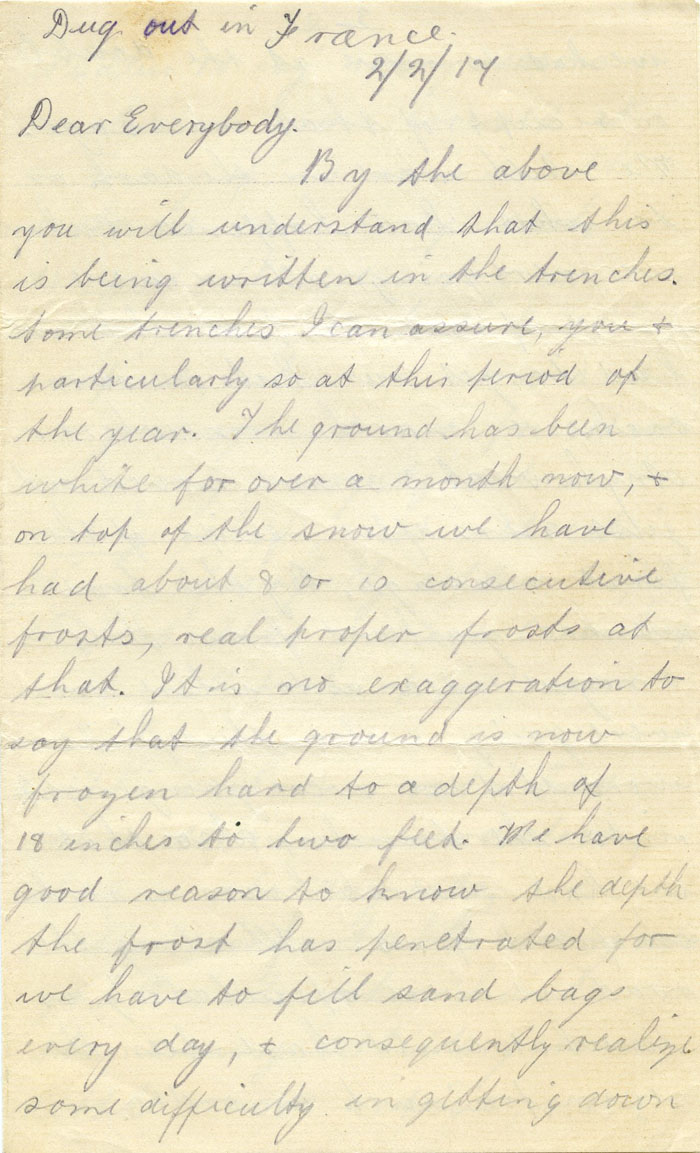 Dug out in France.
2/2/17
Dear Everybody.
By the above
you will understand that this
is being written in the trenches.
Some trenches I can assure, you +
particularly so at this period of
the year. The ground has been
white for over a month now, +
on top of the snow we have
had about 8 or 10 consecutive
frosts, real proper frosts at
that. It is no exaggeration to
say that the ground is now
frozen hard to a depth of
18 inches to two feet. We have
good reason to know the depth
the frost has penetrated for
we have to fill sand bags
every day, + consequently realize
some difficulty in getting down